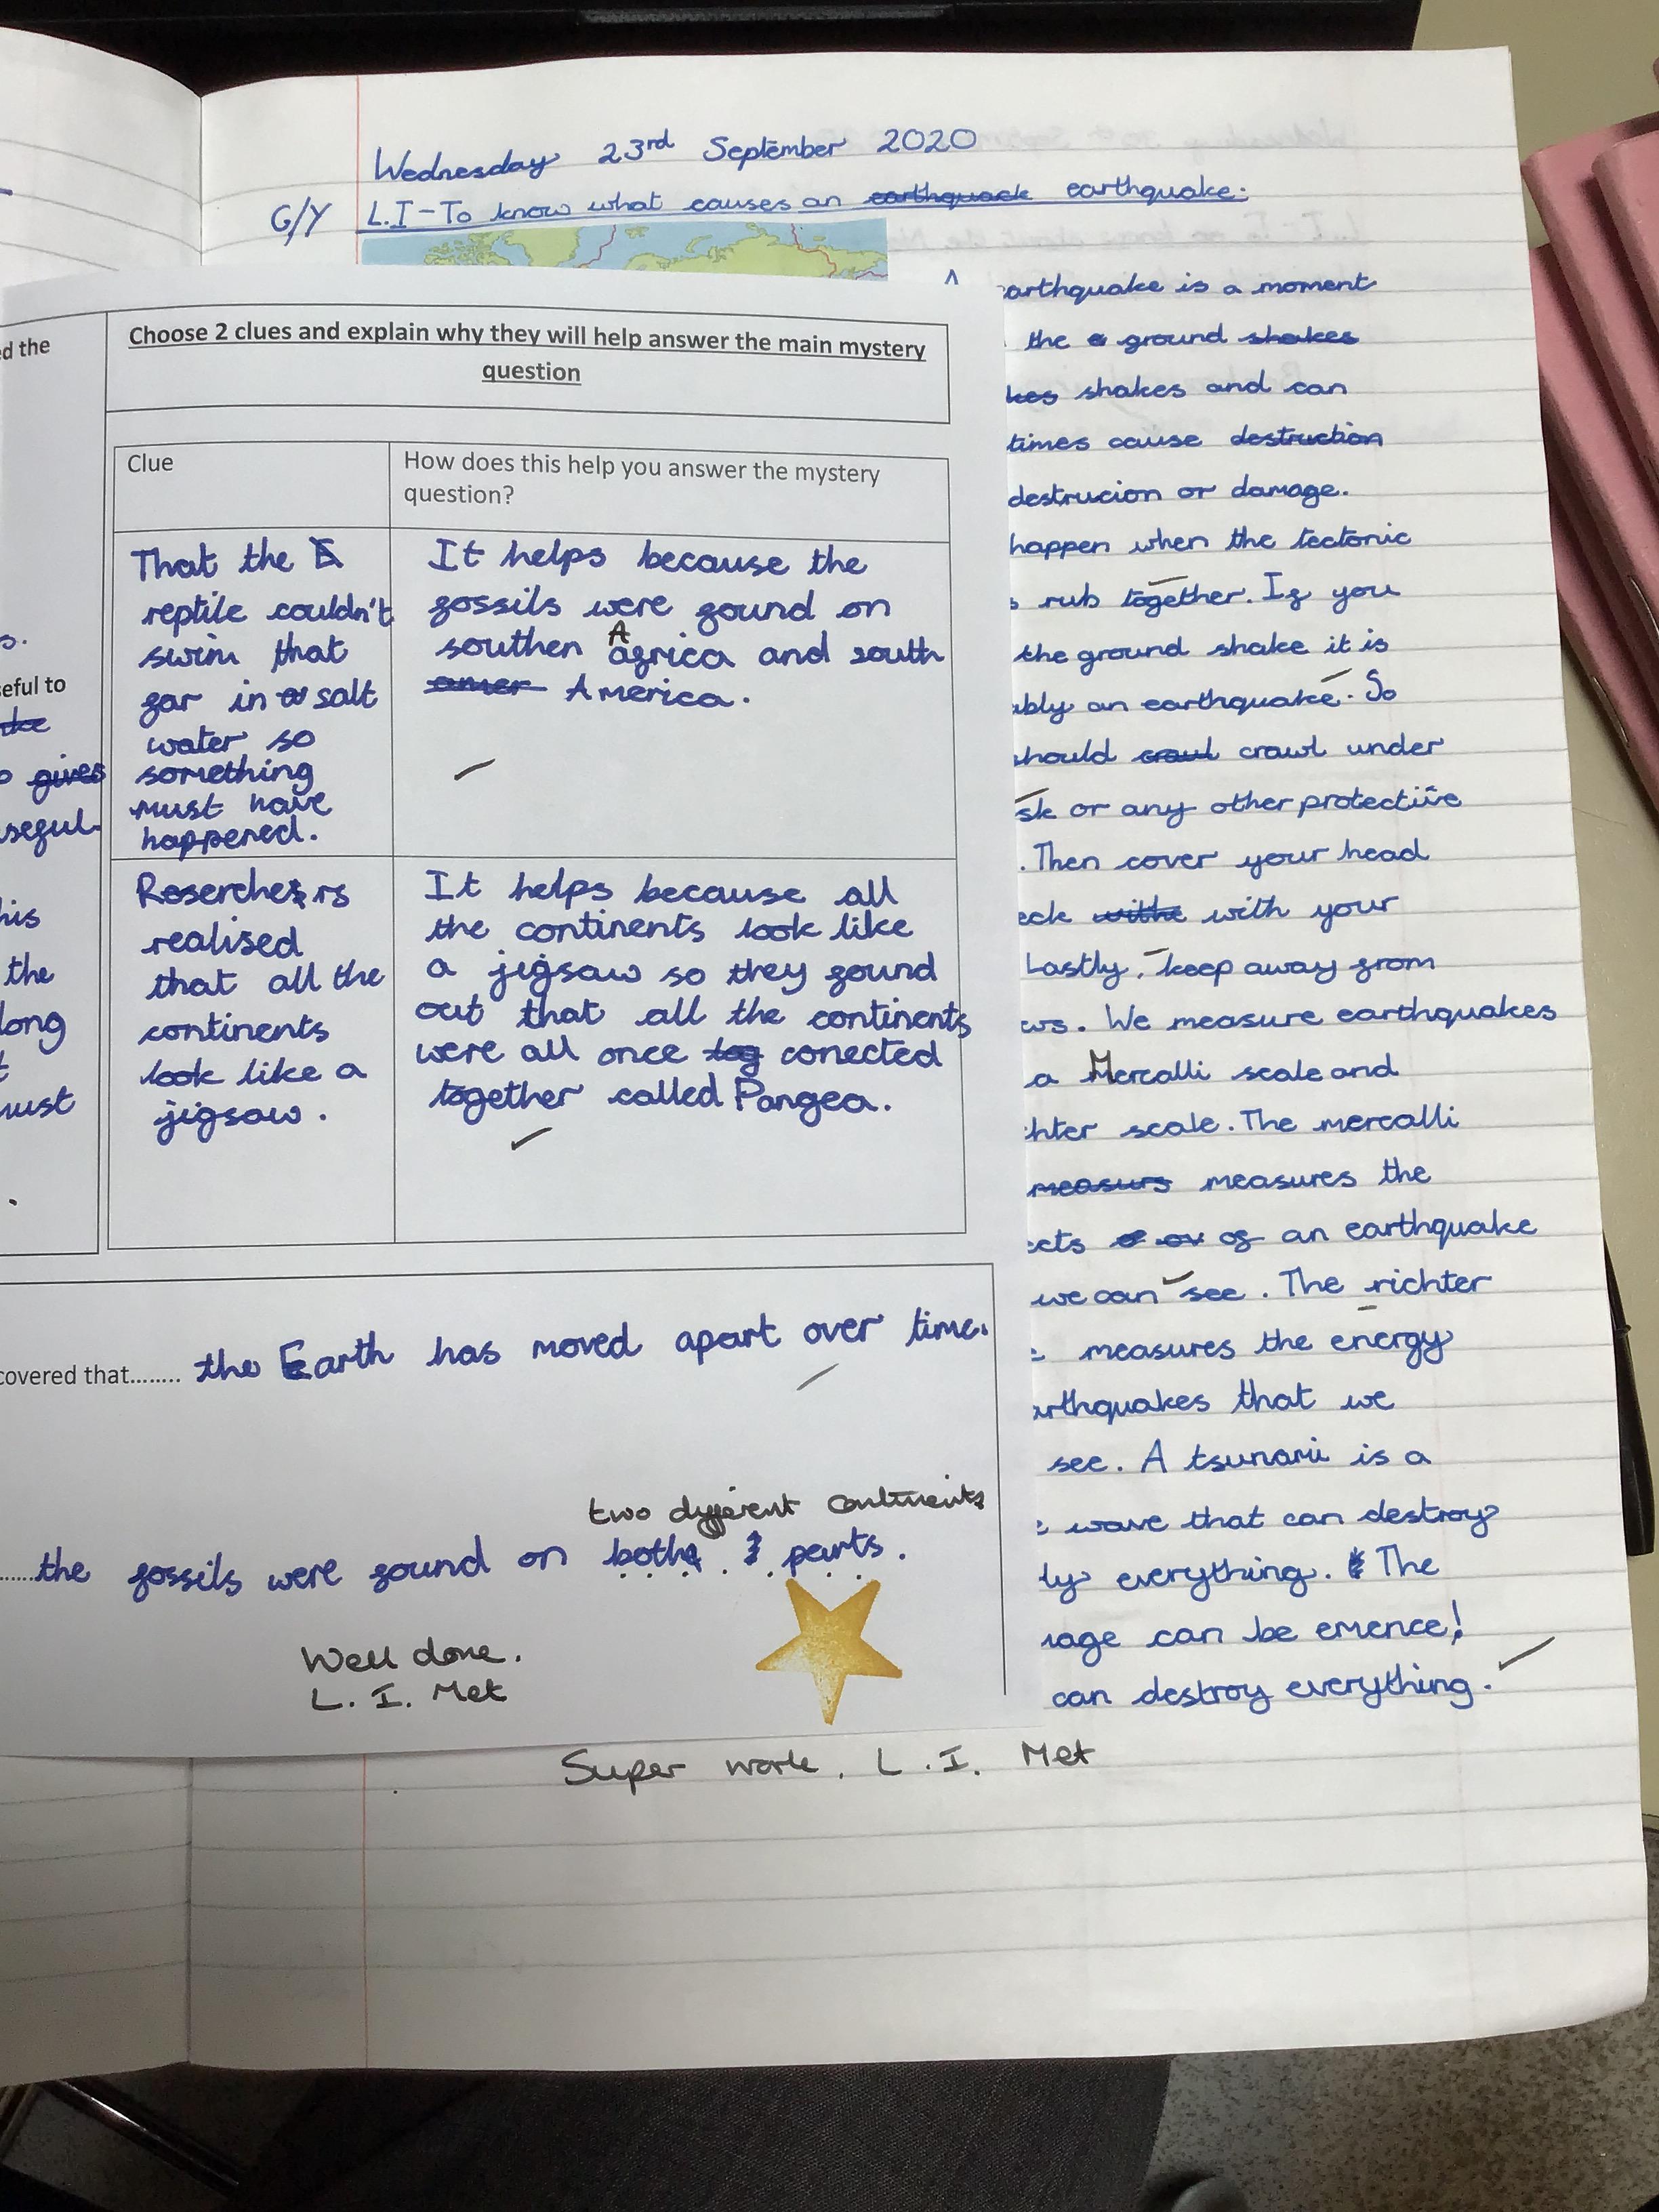 Wednesday 23rd September 2020
G/Y L.I - To know what causes an earthquack earthquake.
ed the
s.
seful to
gives
seful.
his
the
long
t
must
Choose 2 clues and explain why they will help answer the main mystery
question
Clue
How does this help you answer the mystery
question?
That the
reptile couldn't
swim that
far in salt
water so
something
must have
happened.
It helps because the
fossils were found on
southen Africa and south
amer America.
Reserchers
realised
that all the
continents
look like a
jigsaw.
It helps because all
the continents look like
a jigsaw so they found
out that all the continents
were all once tog conected
together called Pangea.
covered that........ the Earth has moved apart over time.
two different continents
......the fossils were found on both parts.
Well done.
L. I. Met
earthquake is a moment
the ground shakes
kes shakes and can
times cause destruction
destrucion or damage.
happen when the tectonic
s rub together. If you
the ground shake it is
ably an earthquake. So
should craul crawl under
sk or any other protective
. Then cover your head
eck withe with your
Lastly, keep away from
ws. We measure earthquakes
a Mercalli scale and
chter scale. The mercalli
measurs measures the
ects of an earthquake
we can see. The richter
e measures the energy
arthquakes that we
see. A tsunami is a
e wave that can destroy
ly everything. The
mage can be emence!
can destroy everything.
Super work. L.I. Met